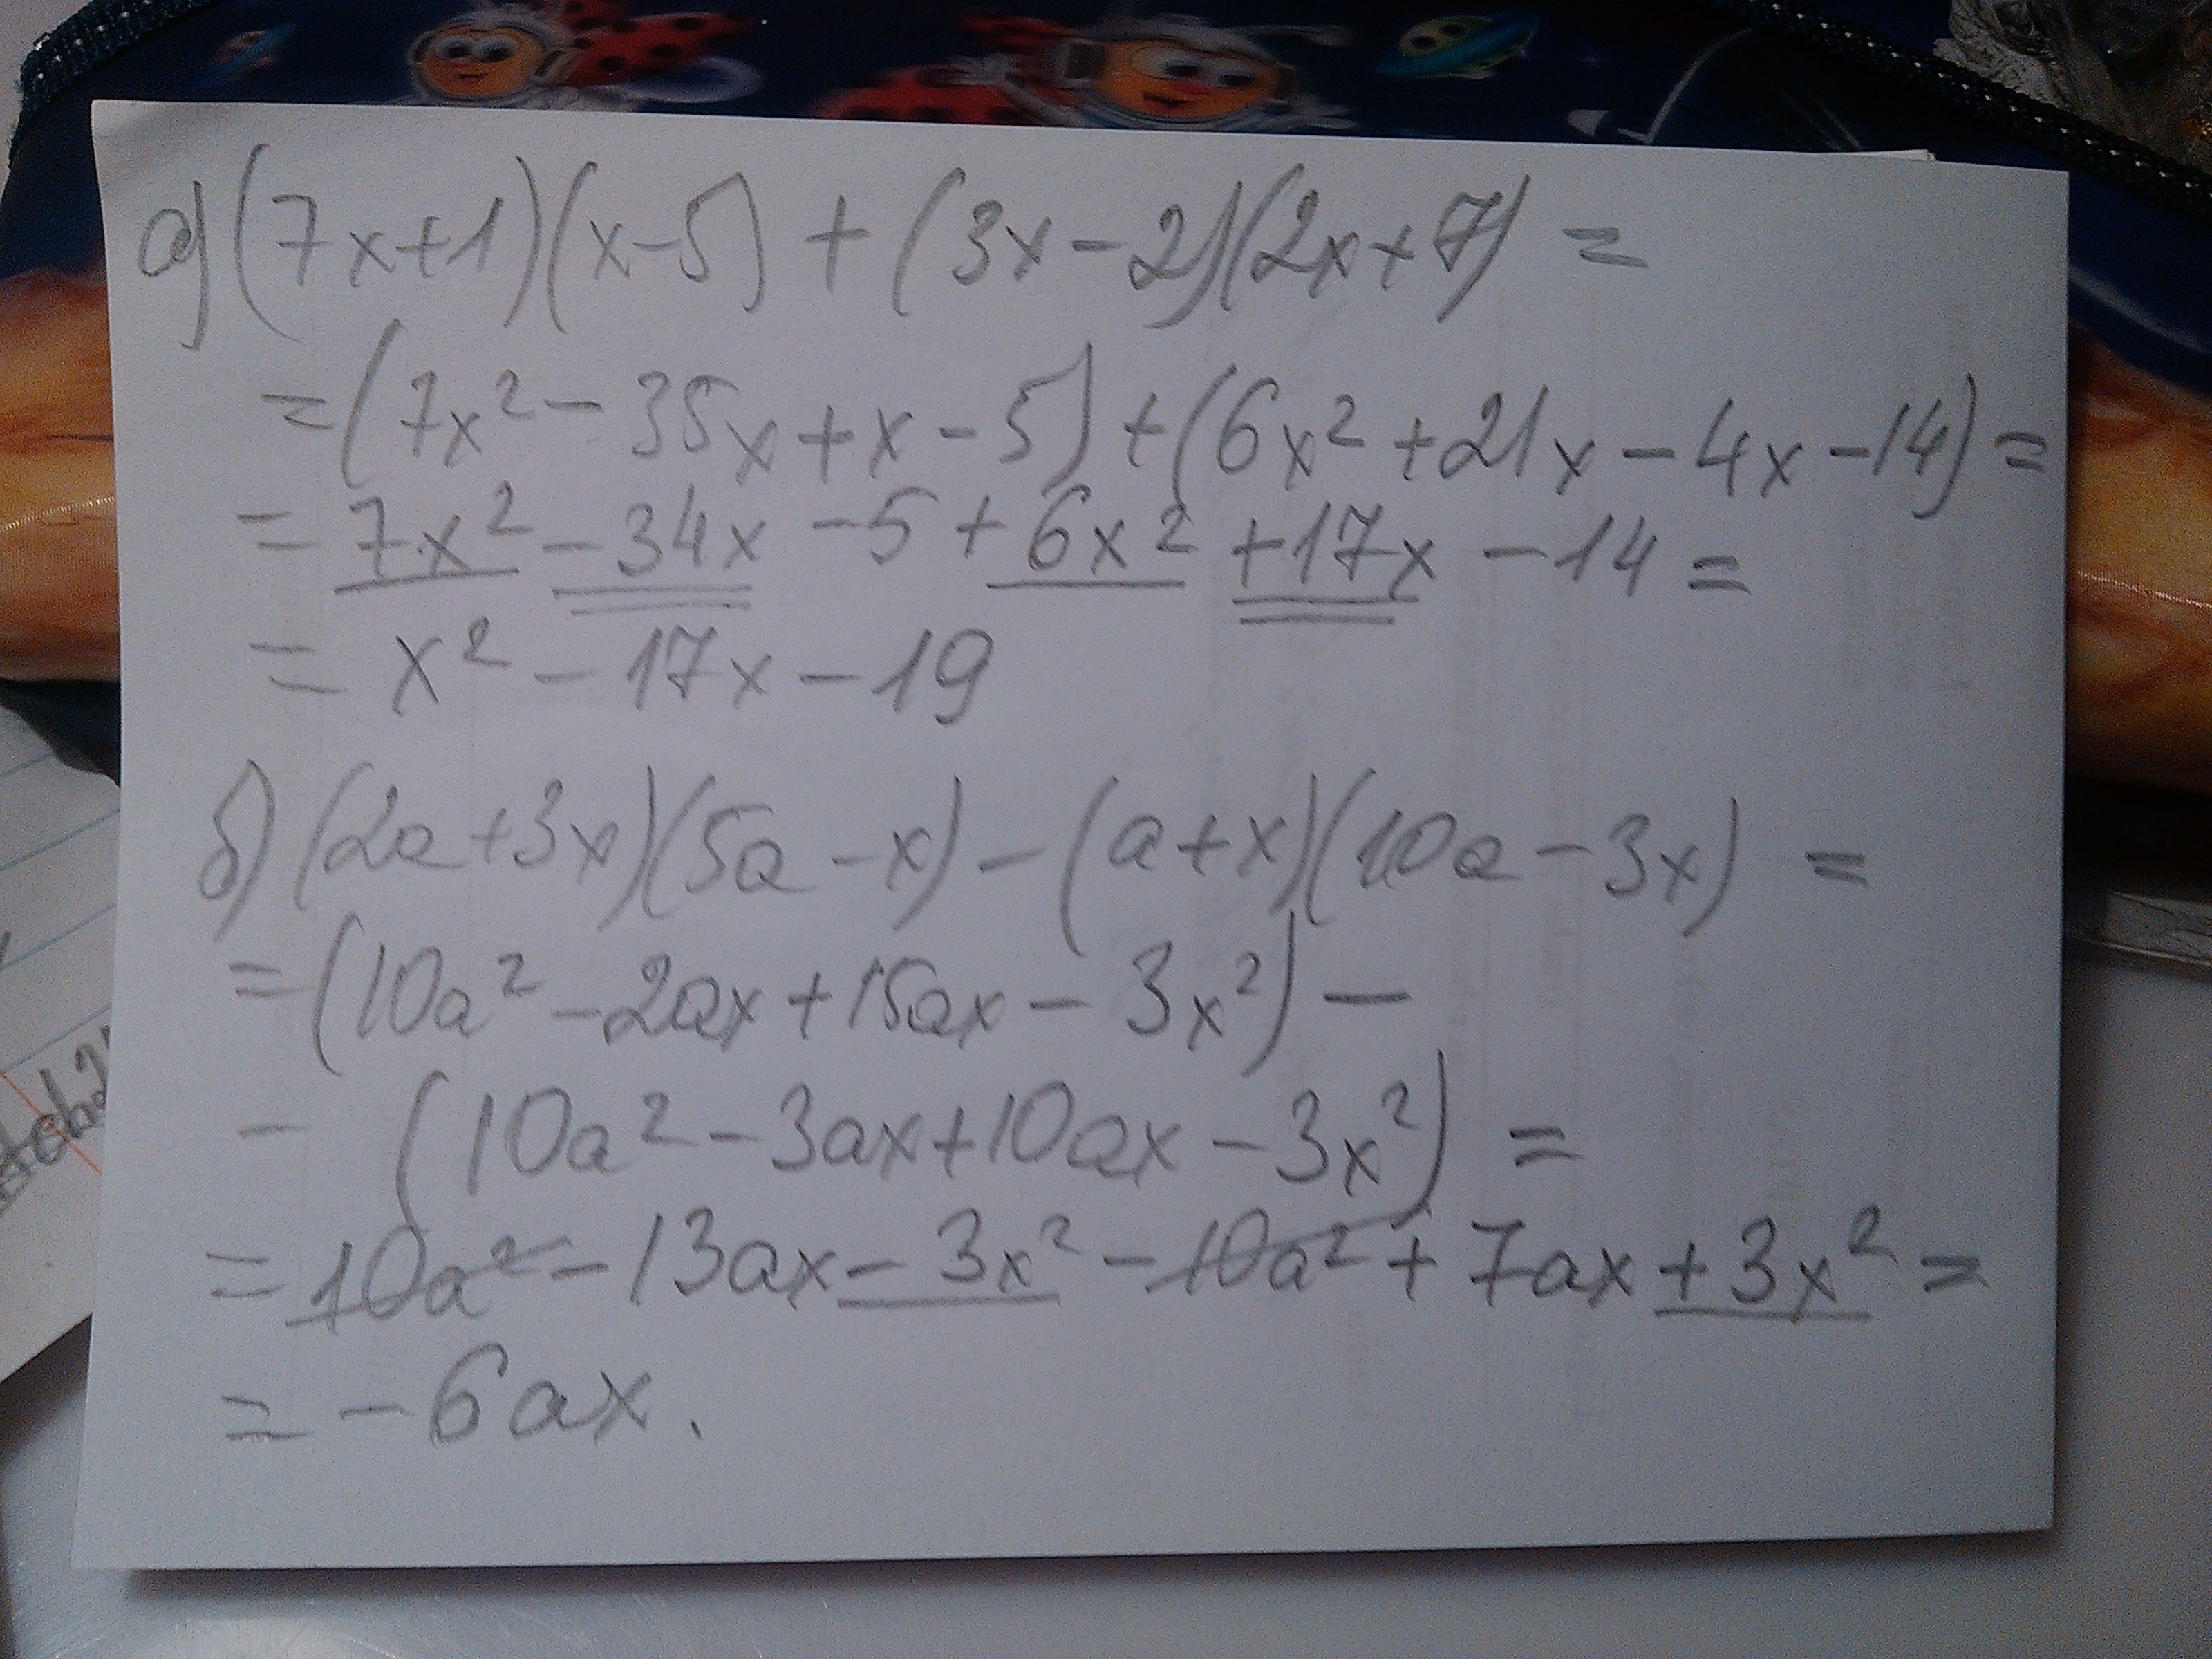 а) (7x+1)(x-5) + (3x-2)(2x+7) =
= (7x² - 35x + x - 5) + (6x² + 21x - 4x - 14) =
= 7x² - 34x - 5 + 6x² + 17x - 14 =
= x² - 17x - 19
б) (2a+3x)(5a-x) - (a+x)(10a-3x) =
= (10a² - 2ax + 15ax - 3x²) -
- (10a² - 3ax + 10ax - 3x²) =
= 10a² - 13ax - 3x² - 10a² + 7ax + 3x² =
= - 6ax.